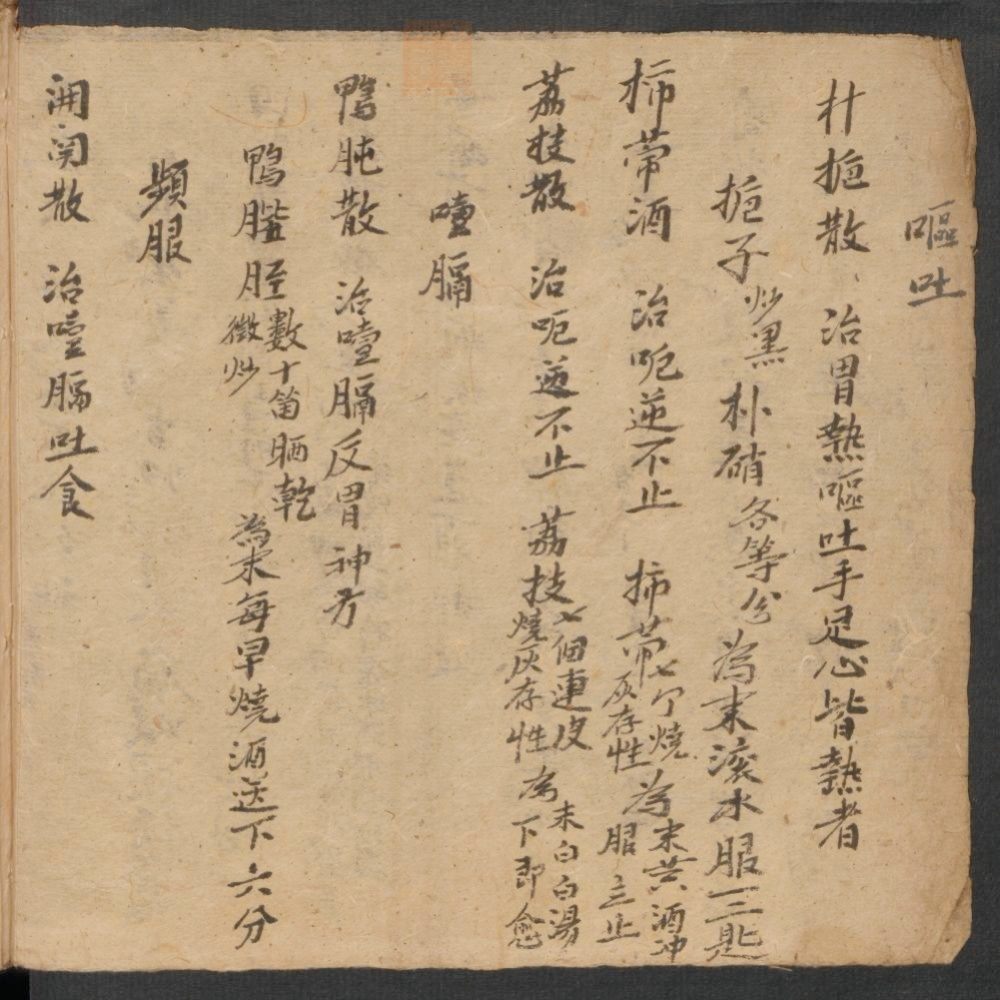 嘔吐
朴梔散 治胃熱嘔吐手足心皆熱者
梔子炒黑 朴硝各等分為末滚水服一二匙
柿蒂酒 治呃逆不止 柿蒂七个燒灰存性為末黄酒冲服立止
荔枝散 治呃逆不止 荔枝七個連皮燒灰存性為末白白湯下即愈
噎膈
鴨肫散 治噎膈反胃神方
鴨 胵數十箇晒乾微炒為末每早燒酒送下六分
頻服
開関散 治噎膈吐食